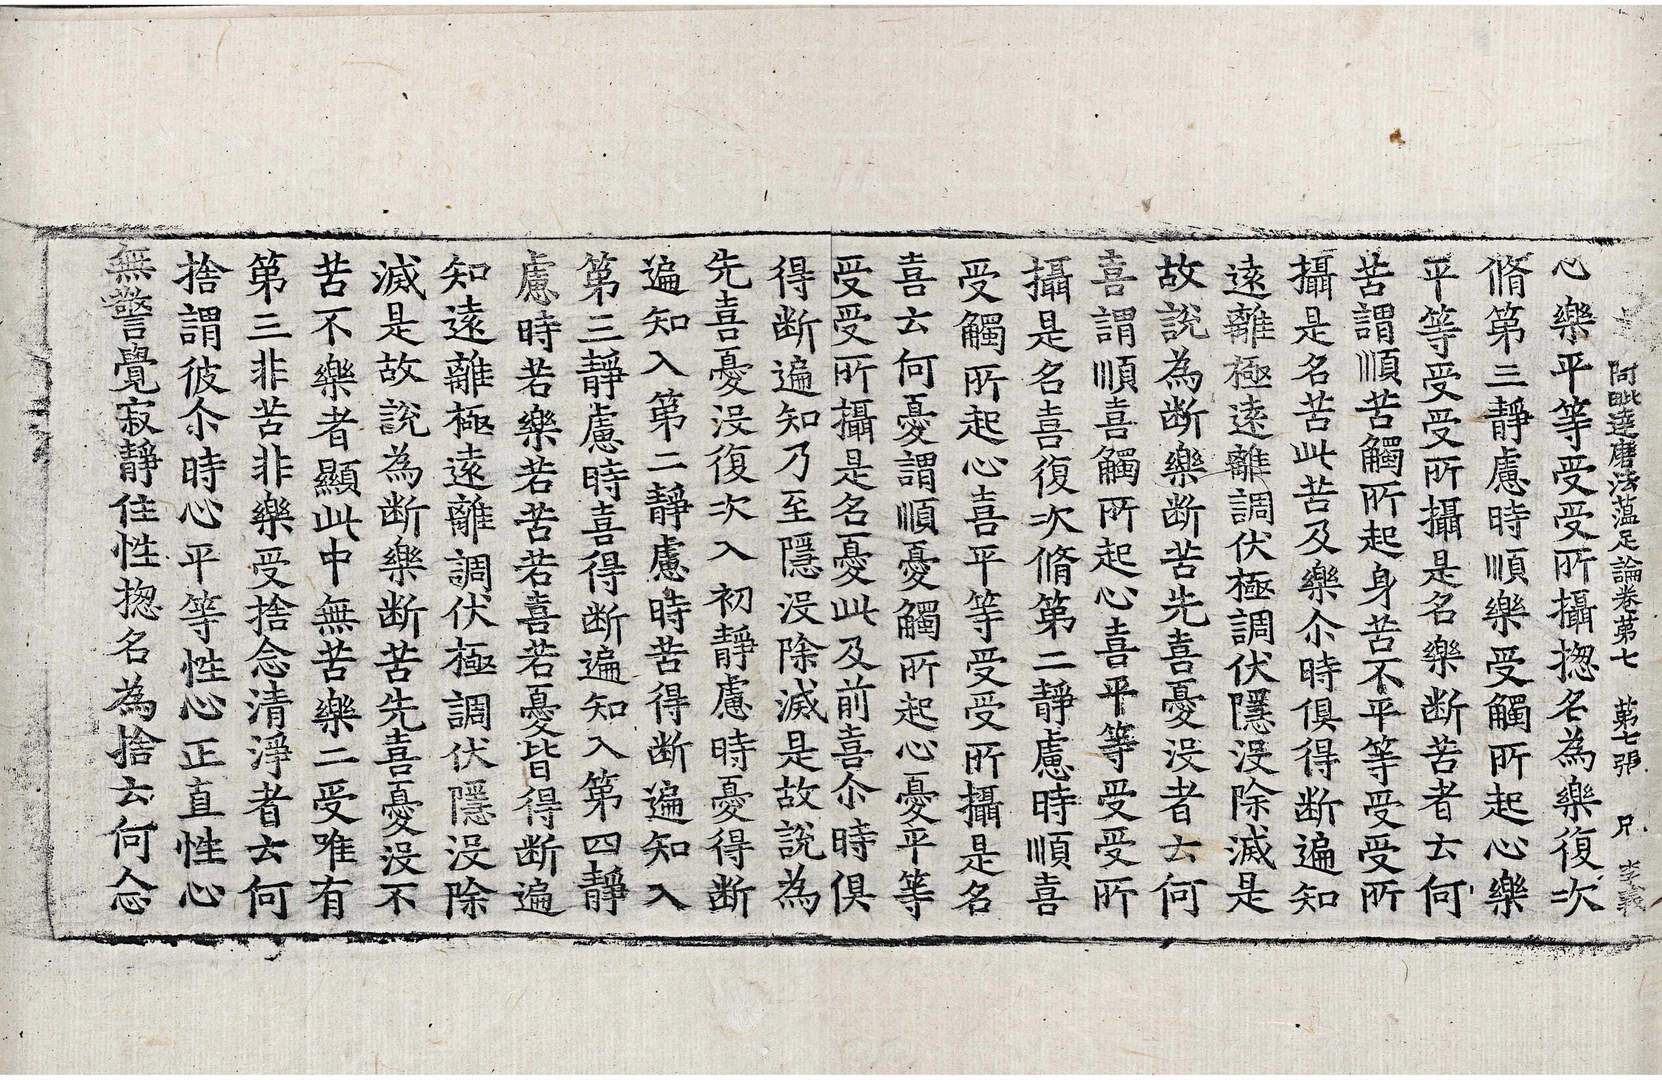 阿毗達磨法蘊足論卷第七　第七張　兄　李義
心樂平等受受所攝揔名為樂復次
脩第三靜慮時順樂受觸所起心樂
平等受受所攝是名樂断苦者云何
苦謂順苦觸所起身苦不平等受受所
攝是名苦此苦及樂尒時俱得断遍知
遠離極遠離調伏極調伏隱没除滅是
故說為断樂断苦先喜憂没者云何
喜謂順喜觸所起心喜平等受受所
攝是名喜復次脩第二靜慮時順喜
受觸所起心喜平等受受所攝是名
喜云何憂謂順憂觸所起心憂不平等
受受所攝是名憂此及前喜尒時俱
得断遍知乃至隱没除滅是故說為
先喜憂没復次入初靜慮時憂得断
遍知入第二靜慮時苦得断遍知入
第三靜慮時喜得断遍知入第四靜
慮時若樂若苦若喜若憂皆得断遍
知遠離極遠離調伏極調伏隱没除
滅是故說為断樂断苦先喜憂没不
苦不樂者顯此中無苦樂二受唯有
第三非苦非樂受捨念清淨者云何
捨謂彼尒時心平等性心正直性心
無警覺寂靜住性揔名為捨云何念